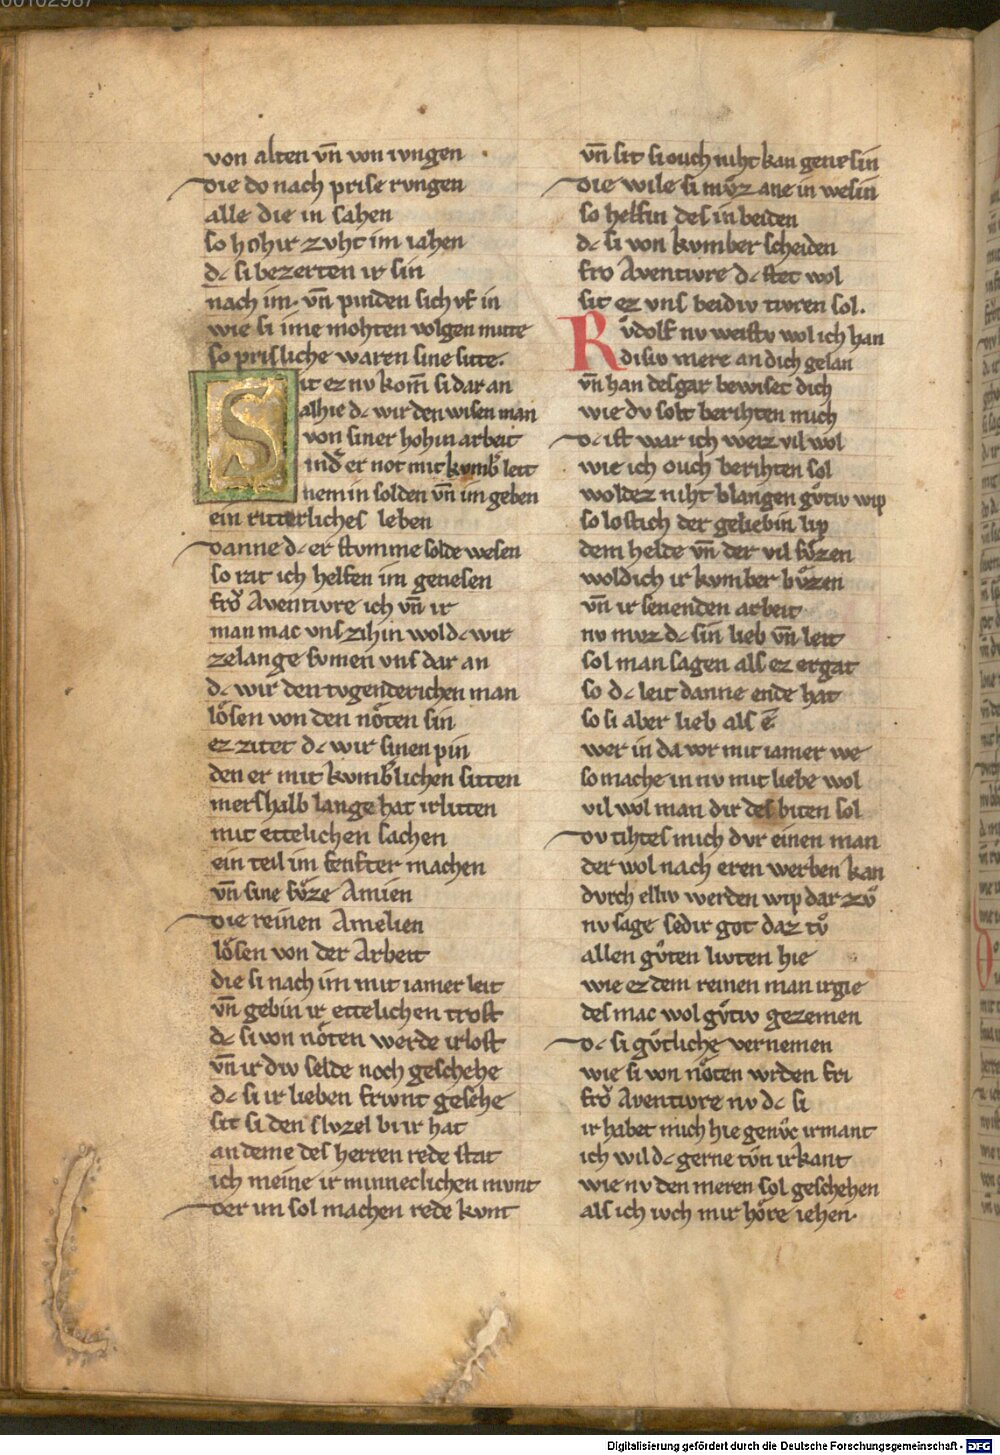 00102987
von alten vn̄ von ivngen
die do nach prise rvngen
alle die in sahen
so hohir zvht im iahen
dc si bezerten ir sin
nach im. vn̄ pinden sich vf in
wie si ime mohten volgen mitte
so prisliche waren sine sitte.
Sit ez nv kom̄ si dar an
alhie dc wir den wisen man
von siner hohin arbeit
in d͛ er not mit kvmb͛ leit
nemin solden vn̄ im geben
ein ritterliches leben
danne dc er stvmme solde wesen
so rat ich helfen im genesen
frŏ Aventivre ich vn̄ ir
man mac vns zihin wol dc wir
zelange svmen vns dar an
dc wir den tvgenderichen man
lo̊sen von den no̊ten sin
ez zitet dc wir sinen pin
den er mit kvmb͛lichen sitten
mershalb lange hat irlitten
mit ettelichen sachen
ein teil im senfter machen
vn̄ sine sv̊ze Amien
die reinen Amelien
lo̊sen von der Arbeit
die si nach im mit iamer leit
vn̄ gebin ir ettelichen trost
dc si von no̊ten werde irlost
vn̄ ir div selde noch geschehe
dc si ir lieben frivnt gesehe
sit si den slvzel bi ir hat
an deme des herren rede stat
ich meine ir minneclichen mvnt
der im sol machen rede kvnt
vn̄ sit si ouch niht kan genesin
die wile si mv̊z ane in wesin
so helfin des in beiden
dc si von kvmber scheiden
fro Aventivre dc stet wol
sit ez vns beidiv tivren sol.
Rv̊dolf nv weistv wol ich han
disiv mere an dich gelan
vn̄ han des gar bewiset dich
wie dv solt berihten mich
dc ist war ich weiz vil wol
wie ich ouch berihten sol
woldez niht blangen gv̊tiv wip
so lost ich der geliebin lip
dem helde vn̄ der vil sv̊zen
wold ich ir kvmber bv̊zen
vn̄ ir senenden arbeit
nv mvz dc sin lieb vn̄ leit
sol man sagen als ez ergat
so dc leit danne ende hat
so si aber lieb als ē
wer in da vor mit iamer we
so mache in nv mit liebe wol
vil wol man dir des biten sol
dv tihtes mich dvr einen man
der wol nach eren werben kan
dvrch elliv werden wip dar zv̊
nv sage se dir got daz tv̊
allen gv̊ten livten hie
wie ez dem reinen man irgie
des mac wol gv̊tiv gezemen
dc si gv̊tliche vernemen
wie si von no̊ten wrden fri
frŏ Aventivre nv dc si
ir habet mich hie genv̊c irmant
ich wil dc gerne tv̊n irkant
wie nv den meren sol geschehen
als ich ivch mir ho̊re iehen.
Digitalisierung gefördert durch die Deutsche Forschungsgemeinschaft - DFG